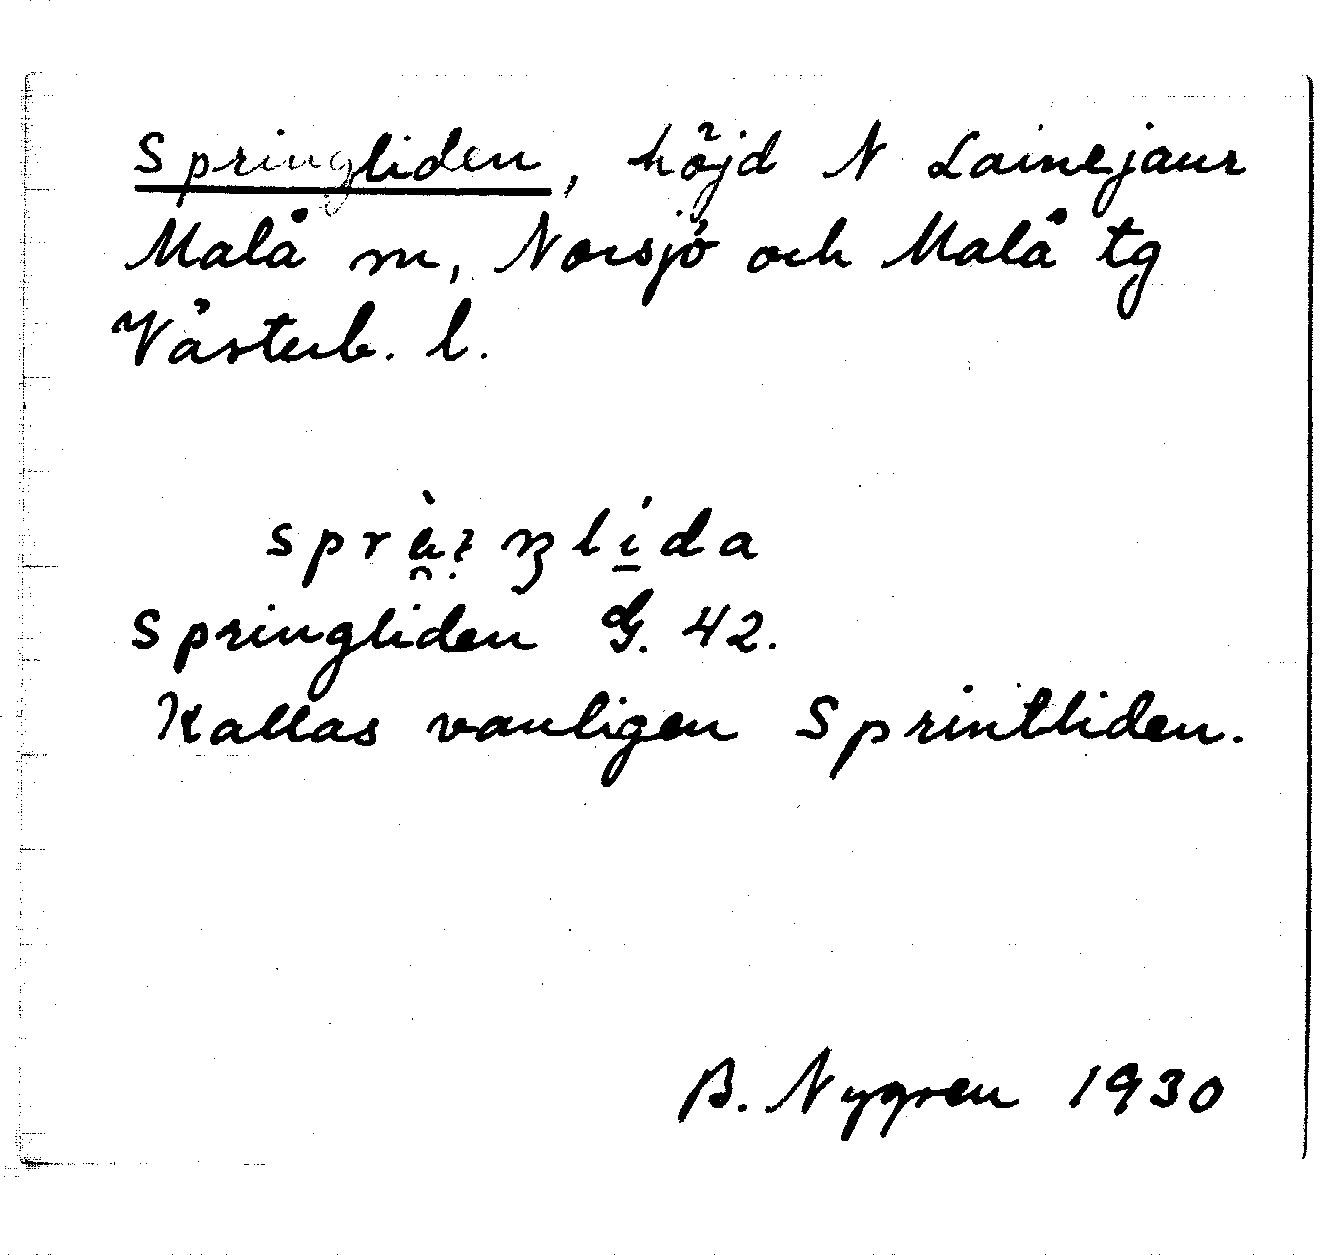 Springliden, höjd N Lainejaur
Malå sn, Norsjö och Malå tg
Västerb. l.
Springliden G. 42.
Kallas vanligen Sprintliden.
B. Nygren 1930